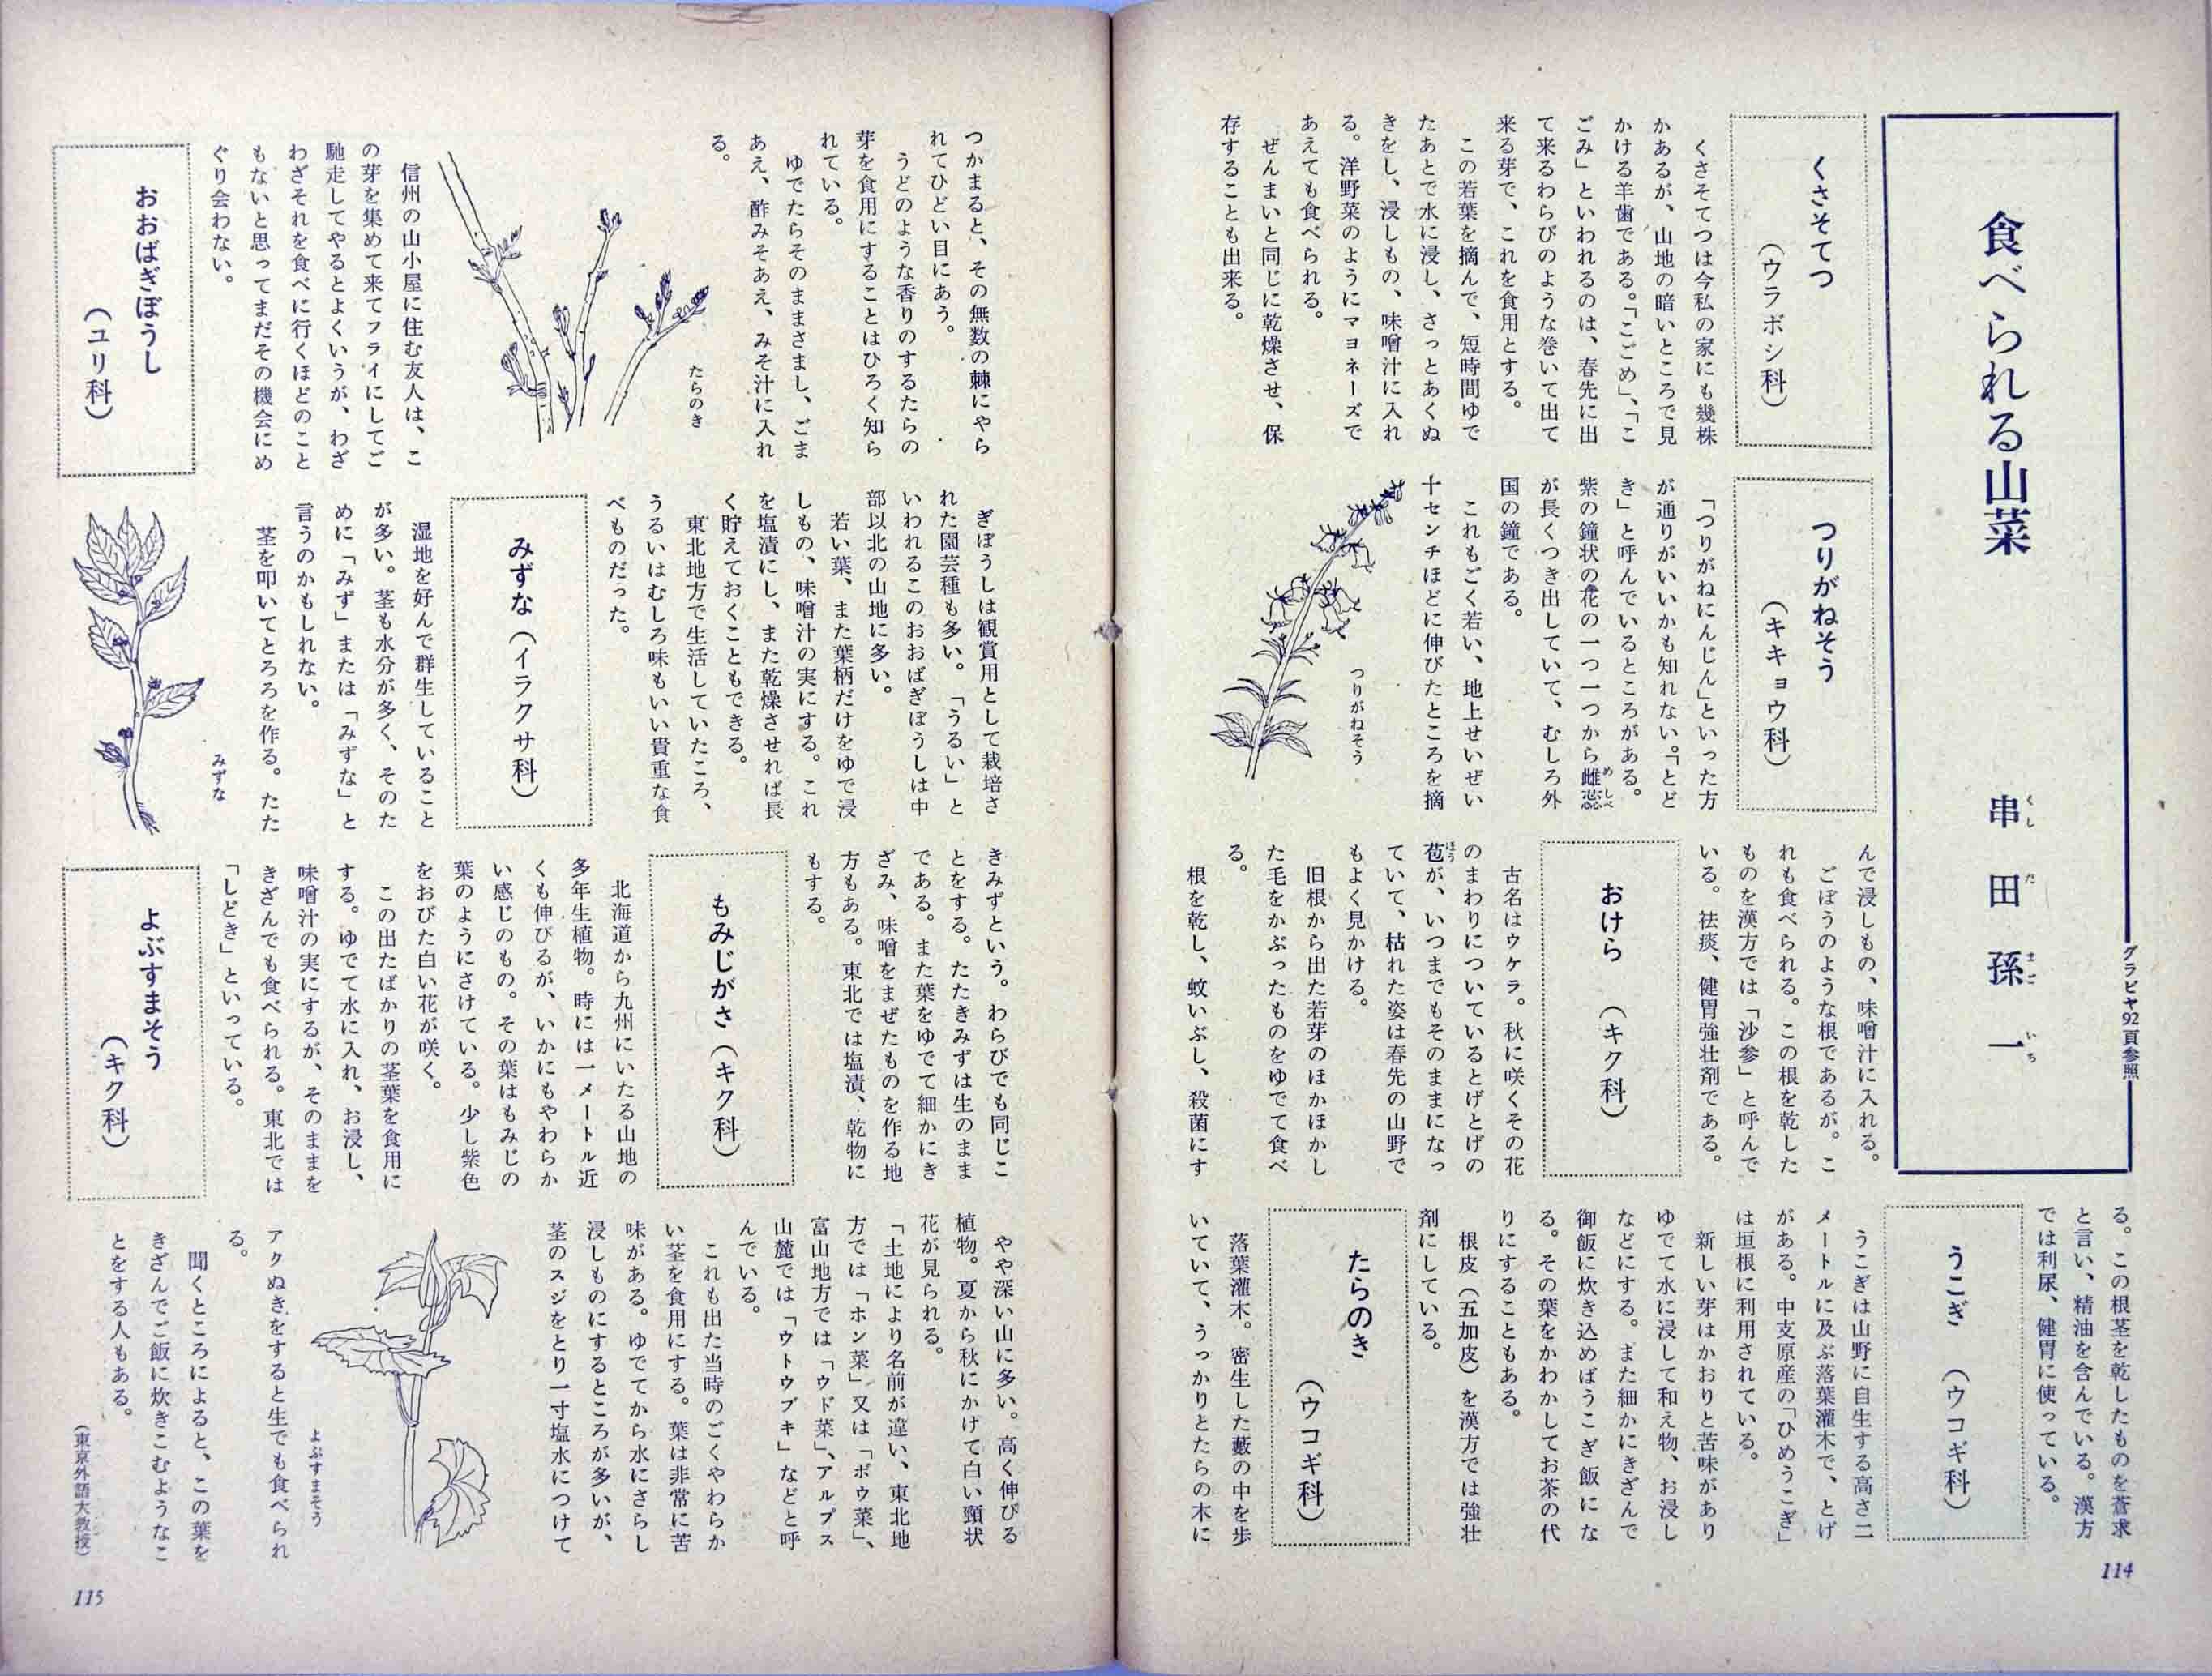 食べられる山菜
串田孫一
くしだまごいち
グラビヤ92頁参照
くさそてつ
（ウラボシ科）
くさそてつは今私の家にも幾株
かあるが、山地の暗いところで見
かける羊歯である。「こごめ」、「こ
ごみ」といわれるのは、春先に出
て来るわらびのような巻いて出て
来る芽で、これを食用とする。
この若葉を摘んで、短時間ゆで
たあとで水に浸し、さっとあくぬ
きをし、浸しもの、味噌汁に入れ
る。洋野菜のようにマヨネーズで
あえても食べられる。
ぜんまいと同じに乾燥させ、保
存することも出来る。
つりがねそう
（キキョウ科）
「つりがねにんじん」といった方
が通りがいいかも知れない。「とど
き」と呼んでいるところがある。
紫の鐘状の花の一つ一つから雌蕊
めしべ
が長くつき出していて、むしろ外
国の鐘である。
これもごく若い、地上せいぜい
十センチほどに伸びたところを摘
つりがねそう
んで浸しもの、味噌汁に入れる。
ごぼうのような根であるが、こ
れも食べられる。この根を乾した
ものを漢方では「沙参」と呼んで
いる。祛痰、健胃強壮剤である。
おけら（キク科）
古名はウケラ。秋に咲くその花
のまわりについているとげとげの
苞が、いつまでもそのままになっ
ほう
ていて、枯れた姿は春先の山野で
もよく見かける。
旧根から出た若芽のほかほかし
た毛をかぶったものをゆでて食べ
る。
根を乾し、蚊いぶし、殺菌にす
る。この根茎を乾したものを蒼求
と言い、精油を含んでいる。漢方
では利尿、健胃に使っている。
うこぎ（ウコギ科）
うこぎは山野に自生する高さ二
メートルに及ぶ落葉灌木で、とげ
がある。中支原産の「ひめうこぎ」
は垣根に利用されている。
新しい芽はかおりと苦味があり
ゆでて水に浸して和え物、お浸し
などにする。また細かにきざんで
御飯に炊き込めばうこぎ飯にな
る。その葉をかわかしてお茶の代
りにすることもある。
根皮（五加皮）を漢方では強壮
剤にしている。
たらのき
（ウコギ科）
落葉灌木。密生した藪の中を歩
いていて、うっかりとたらの木に
114
つかまると、その無数の棘にやら
れてひどい目にあう。
うどのような香りのするたらの
芽を食用にすることはひろく知ら
れている。
ゆでたらそのままさまし、ごま
あえ、酢みそあえ、みそ汁に入れ
る。
たらのき
信州の山小屋に住む友人は、こ
の芽を集めて来てフライにしてご
馳走してやるとよくいうが、わざ
わざそれを食べに行くほどのこと
もないと思ってまだその機会にめ
ぐり会わない。
おおばぎぼうし
（ユリ科）
ぎぼうしは観賞用として栽培さ
れた園芸種も多い。「うるい」と
いわれるこのおおばぎぼうしは中
部以北の山地に多い。
若い葉、また葉柄だけをゆで浸
しもの、味噌汁の実にする。これ
を塩漬にし、また乾燥させれば長
く貯えておくこともできる。
東北地方で生活していたころ、
うるいはむしろ味もいい貴重な食
べものだった。
みずな（イラクサ科）
湿地を好んで群生していること
が多い。茎も水分が多く、そのた
めに「みず」または「みずな」と
言うのかもしれない。
茎を叩いてとろろを作る。たた
みずな
きみずという。わらびでも同じこ
とをする。たたきみずは生のまま
である。また葉をゆでて細かにき
ざみ、味噌をまぜたものを作る地
方もある。東北では塩漬、乾物に
もする。
もみじがさ（キク科）
北海道から九州にいたる山地の
多年生植物。時には一メートル近
くも伸びるが、いかにもやわらか
い感じのもの。その葉はもみじの
葉のようにさけている。少し紫色
をおびた白い花が咲く。
この出たばかりの茎葉を食用に
する。ゆでて水に入れ、お浸し、
味噌汁の実にするが、そのままを
きざんでも食べられる。東北では
「しどき」といっている。
よぶすまそう
（キク科）
やや深い山に多い。高く伸びる
植物。夏から秋にかけて白い頸状
花が見られる。
「土地により名前が違い、東北地
方では「ホン菜」又は「ボウ菜」、
富山地方では「ウド菜」、アルプス
山麓では「ウトウブキ」などと呼
んでいる。
これも出た当時のごくやわらか
い茎を食用にする。葉は非常に苦
味がある。ゆでてから水にさらし
浸しものにするところが多いが、
茎のスジをとり一寸塩水につけて
よぶすまそう
アクぬきをすると生でも食べられ
る。
聞くところによると、この葉を
きざんでご飯に炊きこむようなこ
とをする人もある。
（東京外語大教授）
115